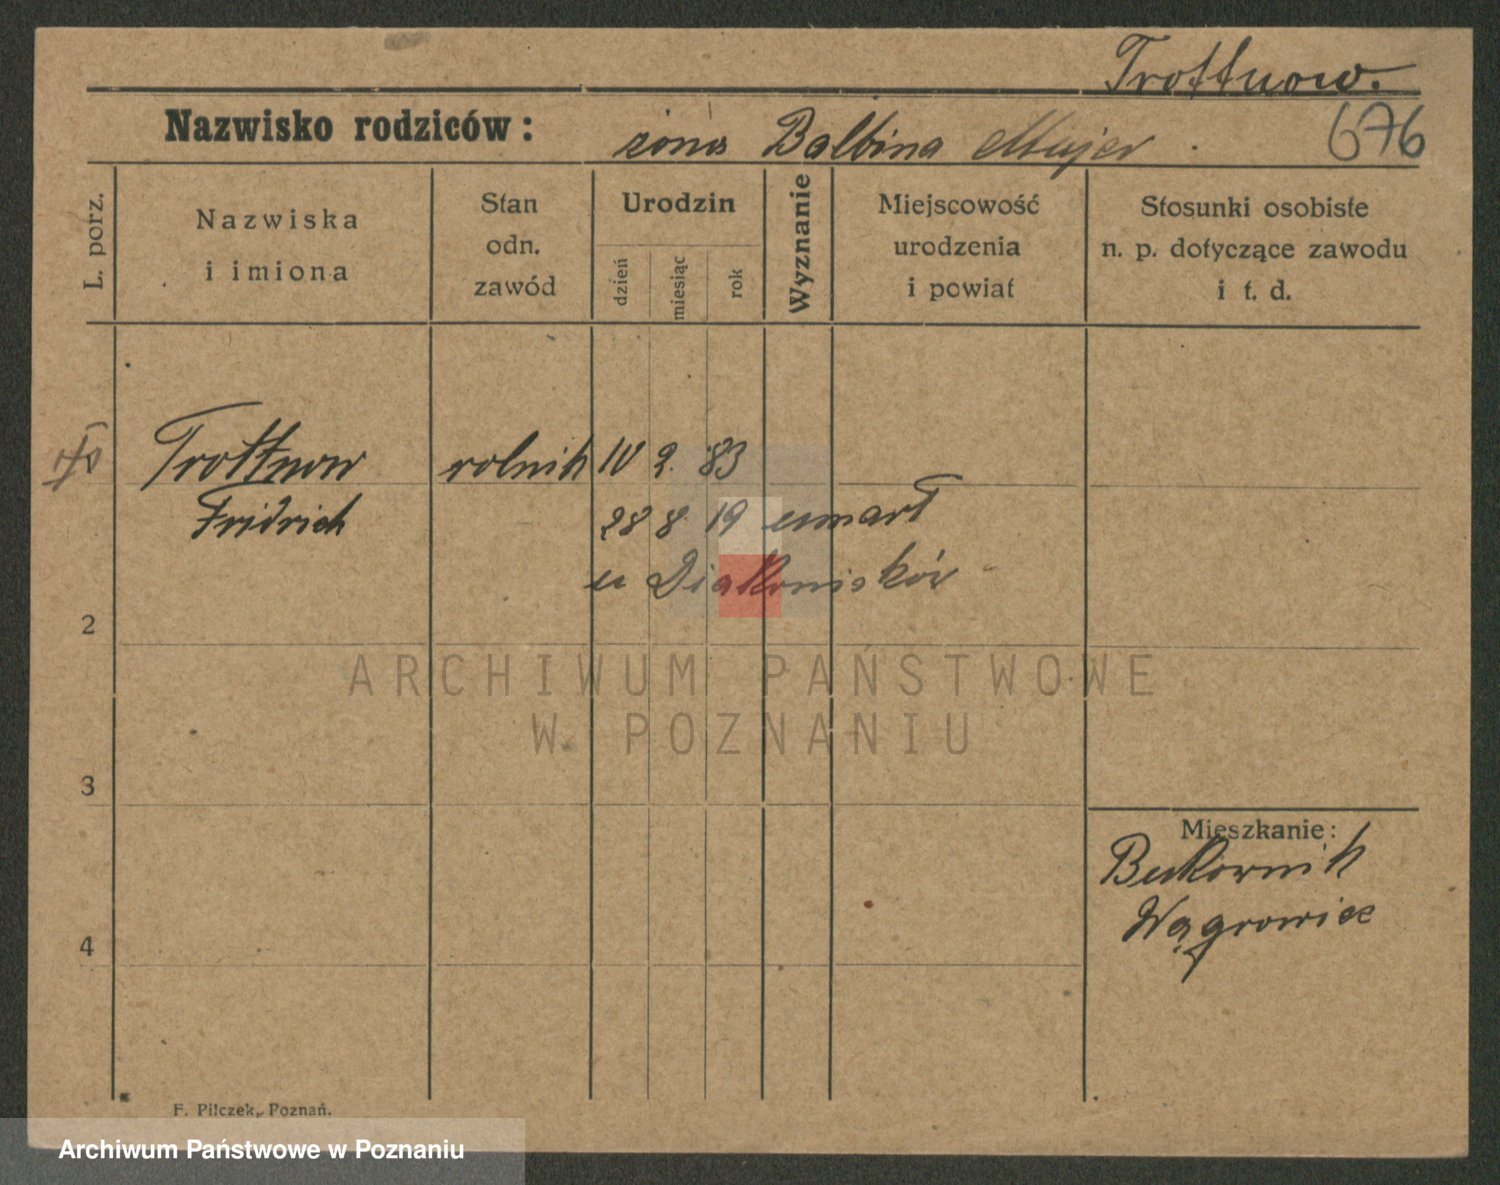 Trottnow.
Nazwisko rodziców: żona Balbina Majer
676
L. porz.
Nazwiska
i imiona
Stan
odn.
zawód
Urodzin
dzień
miesiąc
rok
Wyznanie
Miejscowość
urodzenia
i powiat
Stosunki osobiste
n. p. dotyczące zawodu
i t. d.
Trottnow rolnik 10 2. 83
Fridrich 28 8. 19 umarł
u Diakonisków
2
ARCHIWUM PAŃSTWOWE
W POZNANIU
3
Mieszkanie:
Bukownik
Wągrowiec
4
F. Pilczek, Poznań.
Archiwum Państwowe w Poznaniu